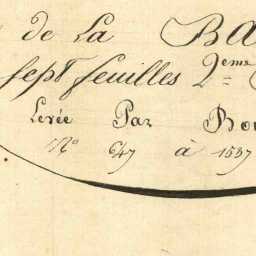 de La Ba
sept feuilles 2eme
Levée Par Ro
No 647 à 1537